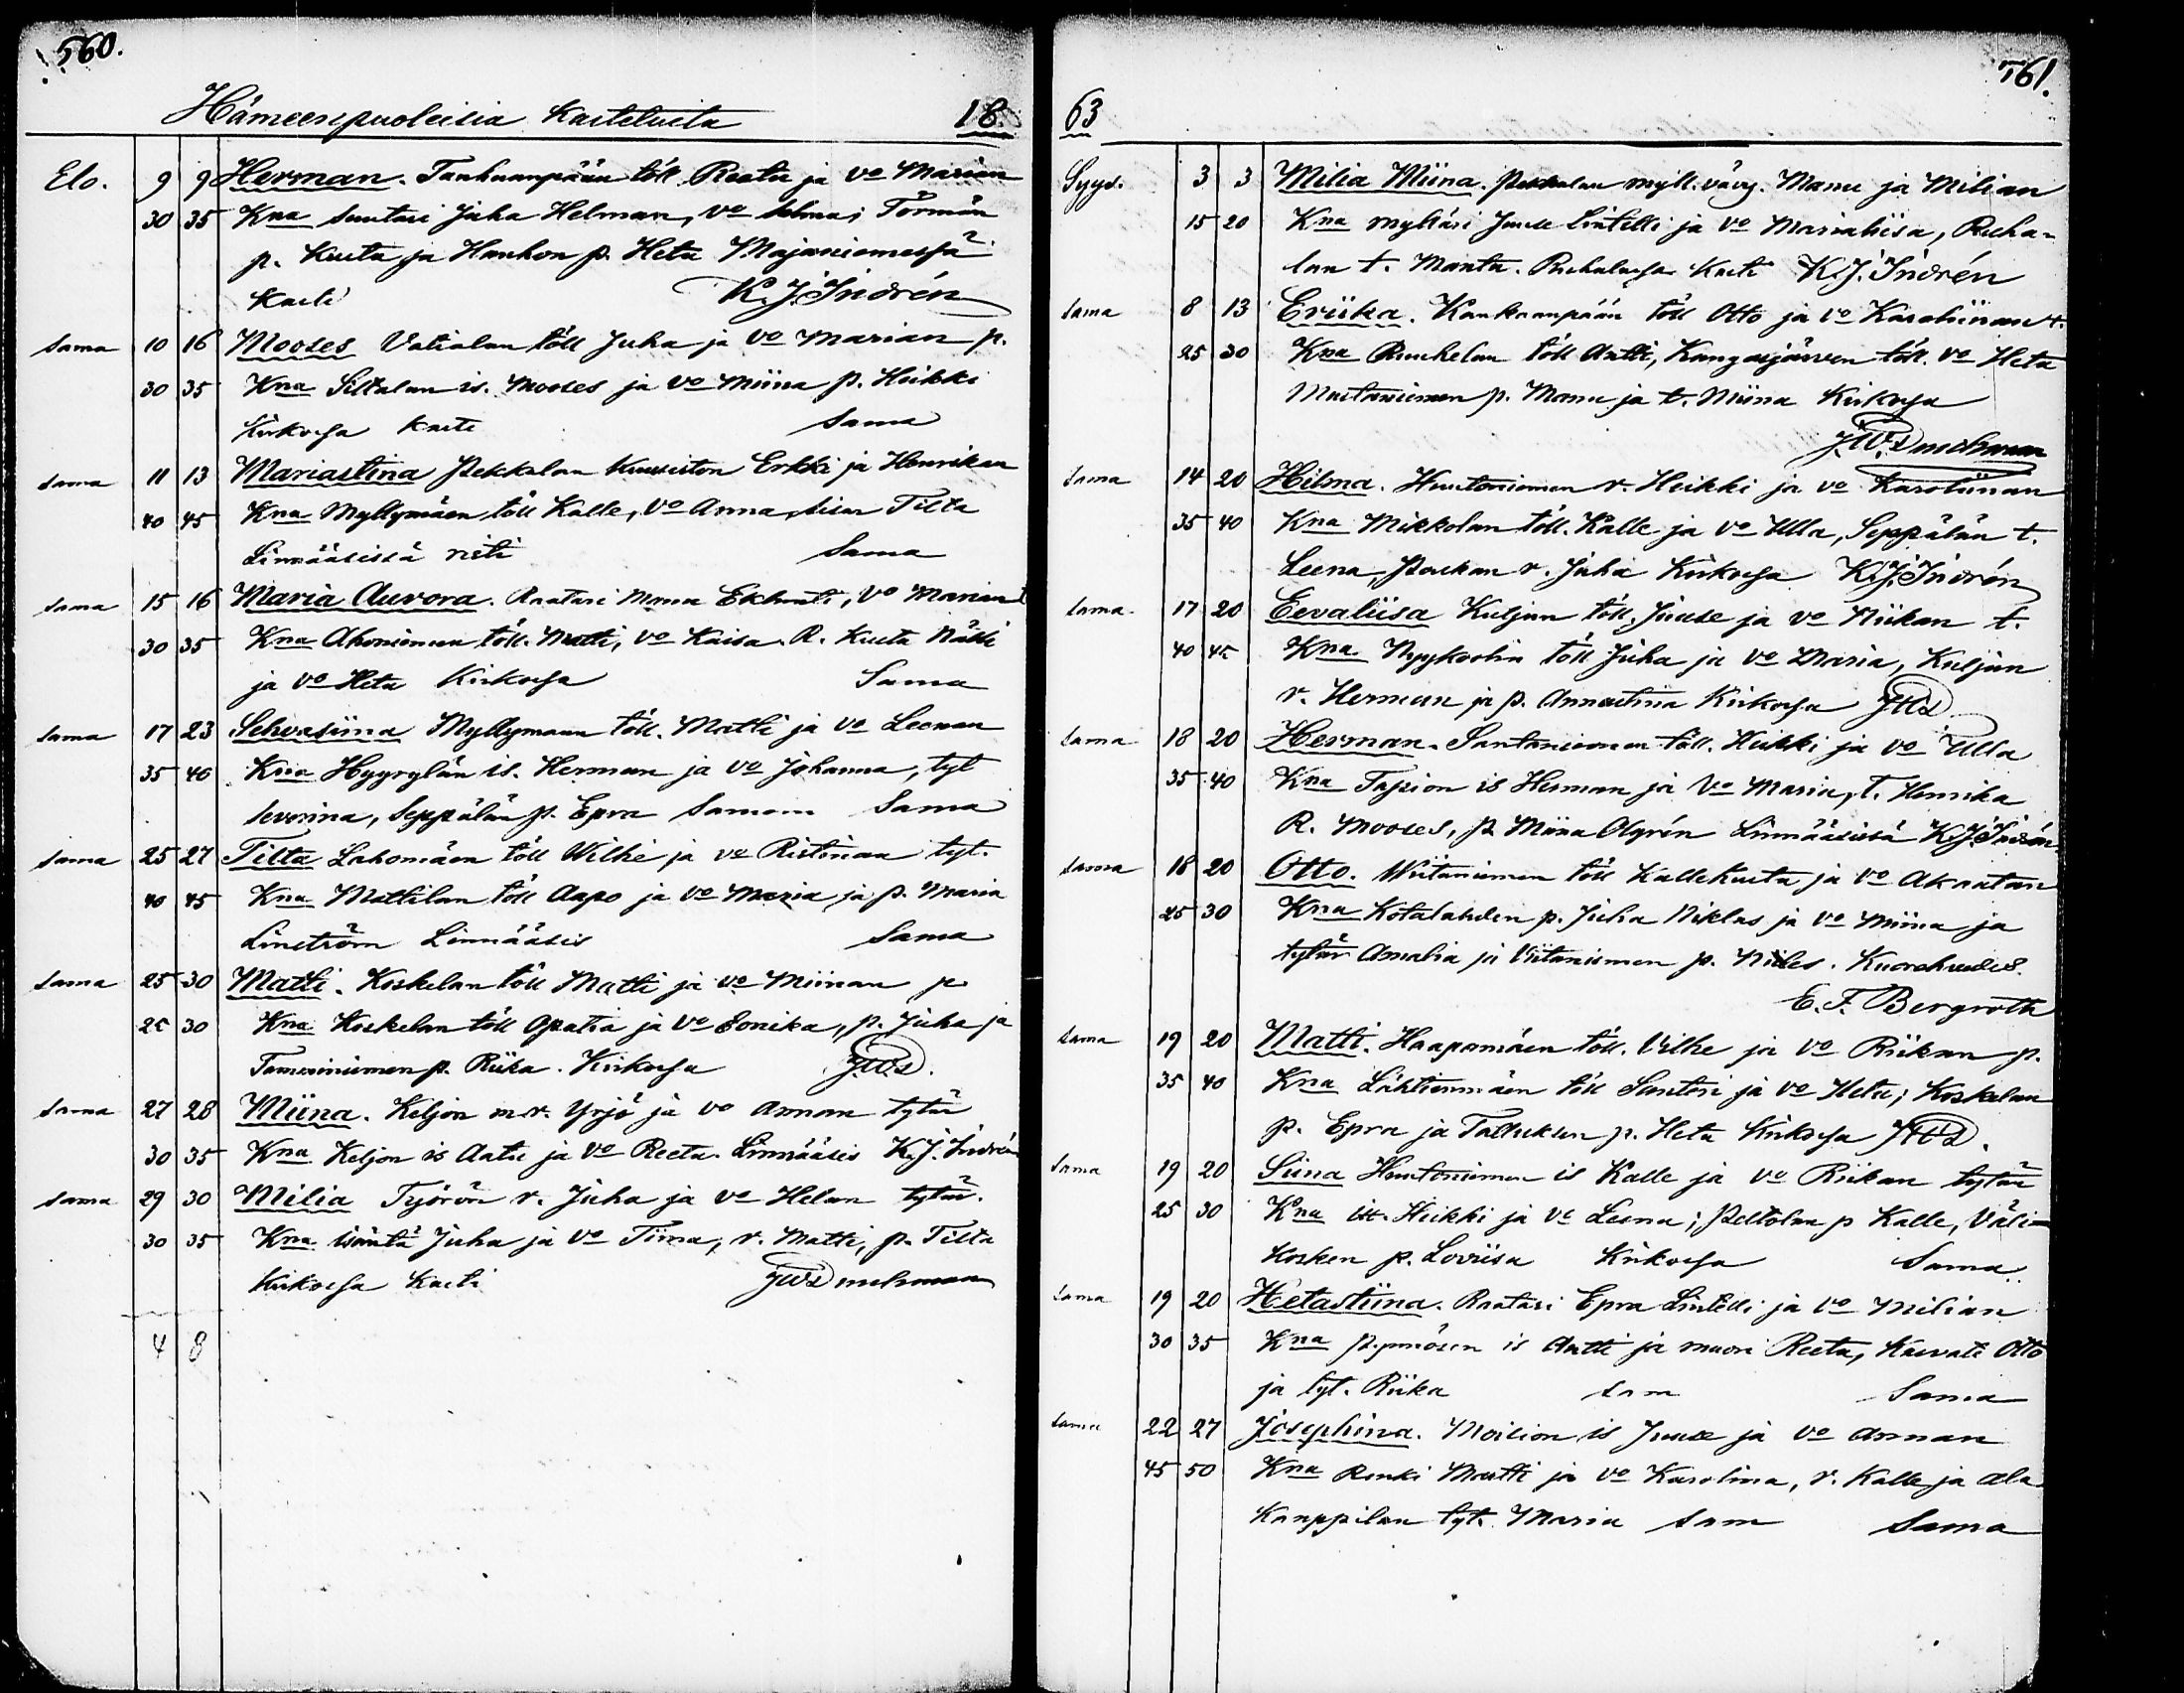 560.
Hämeenpuoleisia Kasteluita 18
Elo. 9 9 Herman. Tanhuanpään töll. Reetu ja vo Marian
30 35 Kna Suutari Juha Helman, vo Selma; Törmän
p. Kusta ja Hanhon p. Heta Majaniemessä
Kasti K. J. Indrén
Sama 10 16 Mooses Vatialan töll Juha ja vo Marian p.
30 35 Kna Siltalan is. Mooses ja vo Miina p. Heikki
Kirkossa Kasti Sama
Sama 11 13 Mariastina Pekkalan Kuusiston Erkki ja Henrikan
40 45 Kna Myllymäen töll Kalle, vo Anna, sisar Tilta
Linnääsissä risti Sama
Sama 15 16 Maria Aurora. Raatari Manu Eklunti, vo Marian t
30 35 Kna Ahoniemen töll. Matti, vo Kaisa. R. Kusta Nätti
ja vo Heta Kirkossa Sama
Sama 17 23 Selvastiina Myllymaan töll. Matti ja vo Leenan
35 40 Kna Hyyrylän is. Herman ja vo Johanna, tyt
Severina, Seppälän p. Epra Samoin Sama
Sama 25 27 Tilta Lahomäen töll Wilhe ja vo Ristinan tyt.
40 45 Kna Mattilan töll Aapo ja vo Maria ja p. Maria
Linström Linnääsis Sama
Sama 25 30 Matti. Koskelan töll Matti ja vo Miinan p
25 30 Kna Koskelan töll Apatia ja vo Lovika, p. Juha ja
Tammniemen p. Riika. Kirkossa J.W.D.
Sama 27 28 Miina. Keljon m.r. Yrjö ja vo Annan tytär
30 35 Kna Keljon is Aatu ja vo Reeta. Linnääsis K. J. Indrén
Sama 29 30 Milia Työrön r. Juha ja vo Helan tytär.
30 35 Kna isäntä Juha ja vo Tiina, r. Matti, p. Tilta
Kirkossa Kasti JWDurchman
4 8
561.
63
Syys. 3 3 Milia Miina. Pekkalan myll. väv. Manu ja Milian
15 20 Kna mylläri Juuse Lintelli ja vo Marialiisa, Ruha-
lan t. Manta. Ruhalassa Kasti K. J. Indrén
Sama 8 13 Eriika. Kankaanpään töll Otto ja vo Karoliinan t.
25 30 Kna Ruuhelan töll Antti, Kangasjärven töll. vo Heta
Mustaniemen p. Manu ja t. Miina Kirkossa
J.W.Durchman
Sama 14 20 Hilma. Huutoniemen r. Heikki ja vo Karoliinan
35 40 Kna Mikkolan töll. Kalle ja vo Ulla, Seppälän t.
Leena, Poukan r. Juha Kirkossa K. J. Indrén
Sama 17 20 Eevaliisa Kuljun töll. Juuse ja vo Riikan t.
40 45 Kna Nyykoolin töll Juha ja vo Maria, Kuljun
r. Herman ja p. Annastiina Kirkossa JWD
Sama 18 20 Herman. Santaniemen töll. Heikki ja vo Ulla
35 40 Kna Tapion is Herman ja vo Maria, t. Henrika
R. Mooses, p. Miina Olgrén Linnääsissä K. J. Indrén
Sama 18 20 Otto. Wiitaniemen töll Kallekusta ja vo Akaatan
25 30 Kna Kotalahden p. Juha Niklas ja vo Miina ja
tytär Amalia ja Viitaniemen p. Niiles. Kuorehvedes.
E. F. Bergroth
Sama 19 20 Matti. Haapamäen töll. Vilhe ja vo Riikan p.
35 40 Kna Lähtienmäen töll Santeri ja vo Heta; Koskelan
p. Epra ja Tallukkan p. Heta Kirkossa JWD.
Sama 19 20 Siina Huutoniemen is Kalle ja vo Riikan tytär
25 30 Kna is. Heikki ja vo Leena; Peltolan p Kalle, Väli-
kosken p. Loviisa Kirkossa Sama
Sama 19 20 Hetastiina. Raatari Epra Lintelli ja vo Milian
30 35 Kna is Antti ja muori Reeta, Kasvati Otto
ja tyt. Riika sam Sama
Sama 22 27 Josephina. Moision is Juuse ja vo Annan
45 50 Kna Renki Matti ja vo Karolina, r. Kalle ja Ala
Kauppilan tyt. Maria sam Sama